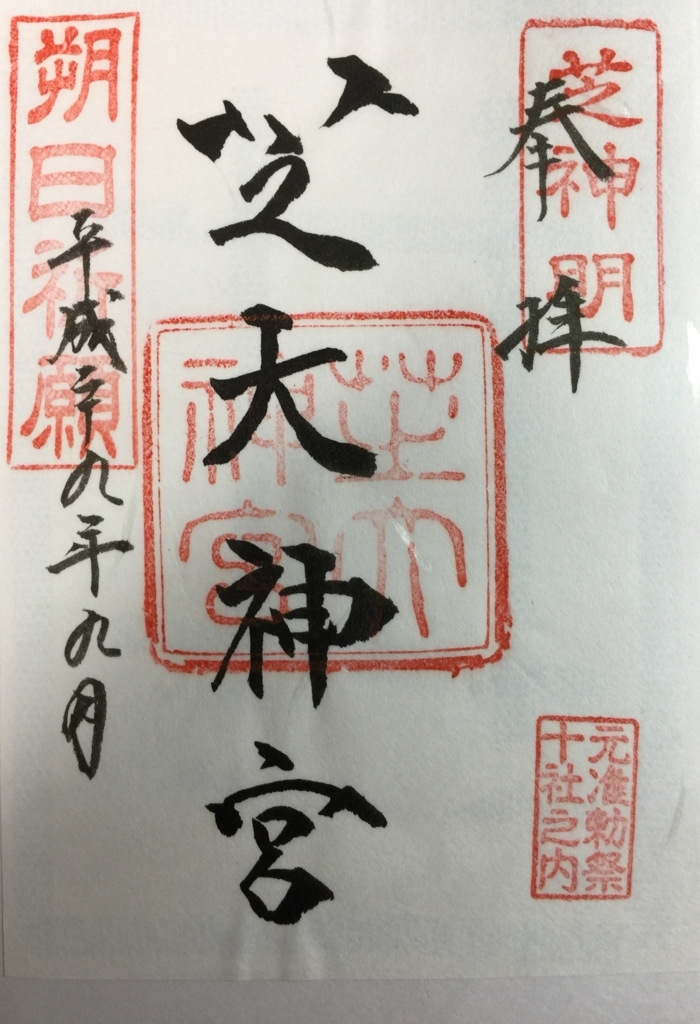 芝神明
奉拝
元准勅祭
十社之内
芝大神宮
芝大
神宮
朔日祈願
平成二十九年九月